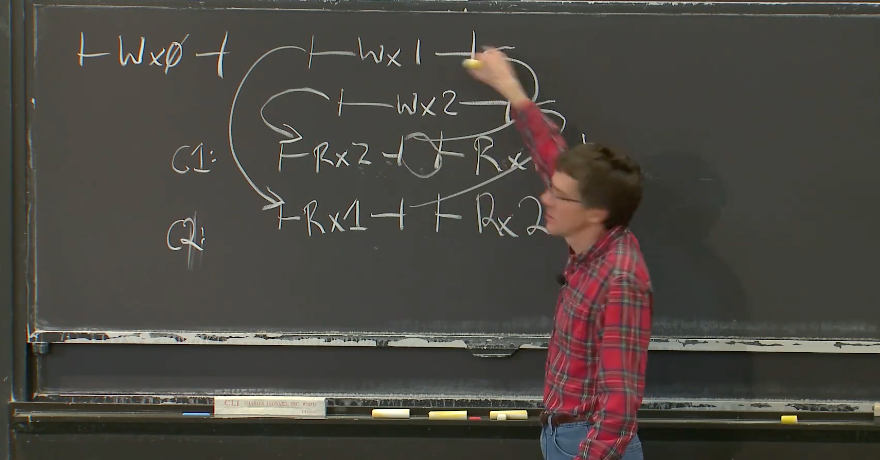 |-Wx0-| |-Wx1-|
|-Wx2-|
C1: |-Rx2-| |-Rx
C2: |-Rx1-| |-Rx2